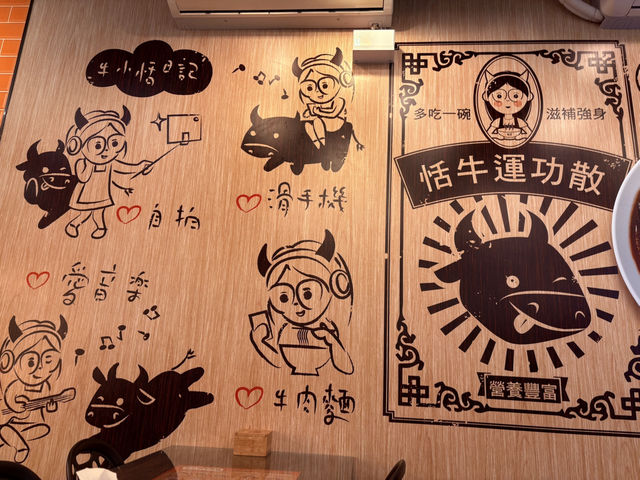 牛小恬日記
自拍
滑手機
愛音楽
牛肉麵
多吃一碗
滋補強身
恬牛運功散
營養豐富